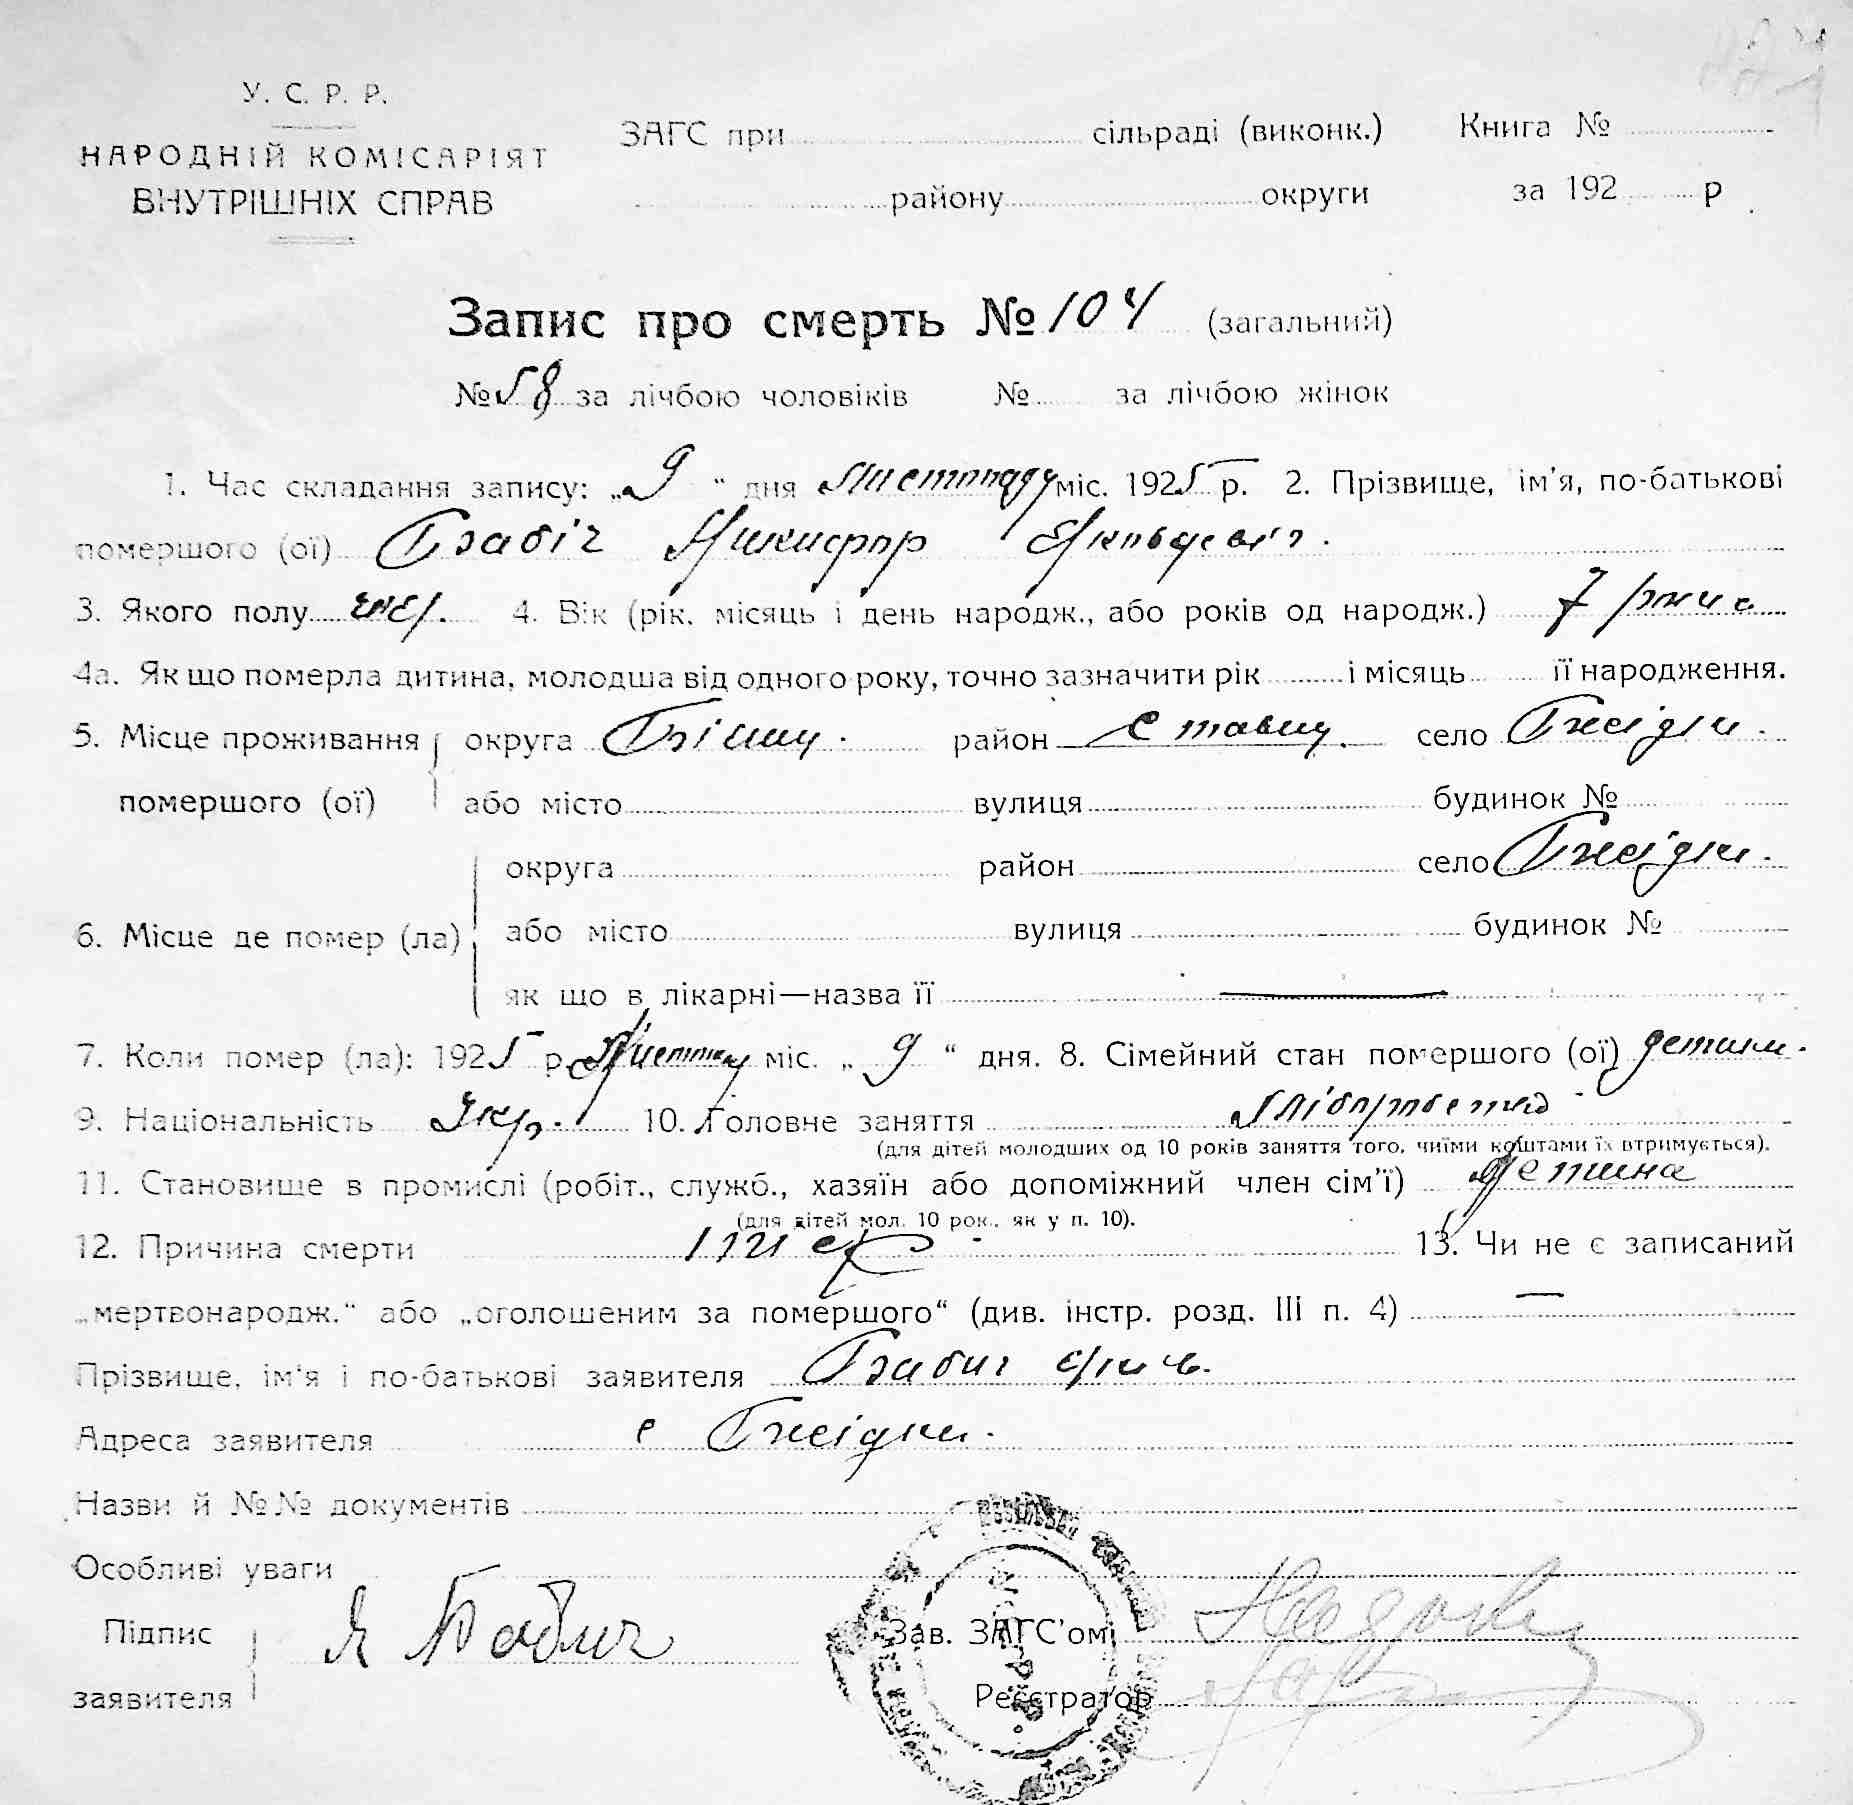 У. С. Р. Р.
НАРОДНІЙ КОМІСАРІЯТ
ВНУТРІШНІХ СПРАВ
ЗАГС при сільраді (виконк.) Книга №
району округи за 192 р.
Запис про смерть № 104 (загальний)
№ 58 за лічбою чоловіків № за лічбою жінок
1. Час складання запису: „9“ дня листопаду міс. 1925 р. 2. Прізвище, ім'я, по-батькові
помершого (ої) Бабіч Никифор
3. Якого полу чол. 4. Вік (рік, місяць і день народж., або років од народж.) 7 років
4а. Як що померла дитина, молодша від одного року, точно зазначити рік і місяць її народження.
5. Місце проживання округа Білицу. район Ставищ. село Бжідки.
помершого (ої) або місто вулиця будинок №
округа район село Бжідки.
6. Місце де помер (ла) або місто вулиця будинок №
як що в лікарні—назва її —
7. Коли помер (ла): 1925 р. Листопад міс. „9“ дня. 8. Сімейний стан помершого (ої)
9. Національність Укр. 10. Головне заняття хлібороб
(для дітей молодших од 10 років заняття того, чиїми коштами їх втримується).
11. Становище в промислі (робіт., служб., хазяїн або допоміжний член сім'ї) детина
(для дітей мол. 10 рок., як у п. 10).
12. Причина смерти 13. Чи не є записаний
„мертвонародж.“ або „оголошеним за помершого“ (див. інстр. розд. III п. 4) —
Прізвище, ім'я і по-батькові заявителя Бабич
Адреса заявителя с Бжідки.
Назви й №№ документів
Особливі уваги
Підпис Я Бабич Зав. ЗАГС'ом
заявителя Реєстратор